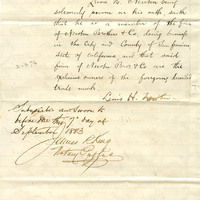 Louis H. Newton being
solemnly sworn on his oath, saith
that he is a member of the firm
of Newton Brothers & Co, doing business
in the City and County of San Francisco
State of California and that said
firm of Newton Bros & Co are the
exclusive owners of the foregoing described
trade mark
Louis H. Newton
Subscribed and Sworn to
before me this 7th day of
September 1883
James L. King
Notary Public